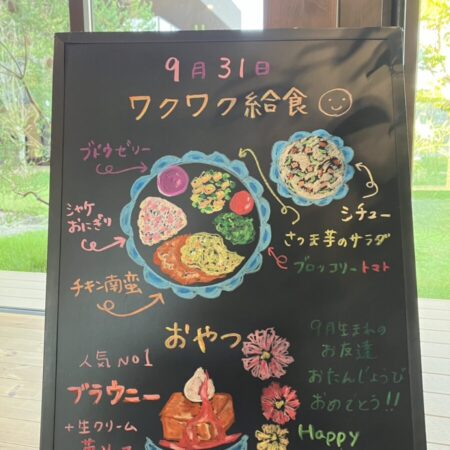 9月31日
ワクワク給食
ブドウゼリー
シャケ
おにぎり
チキン南蛮
シチュー
さつま芋のサラダ
ブロッコリートマト
おやつ
人気No1
ブラウニー
+生クリーム
9月生まれの
お友達
おたんじょうび
おめでとう!!
Happy